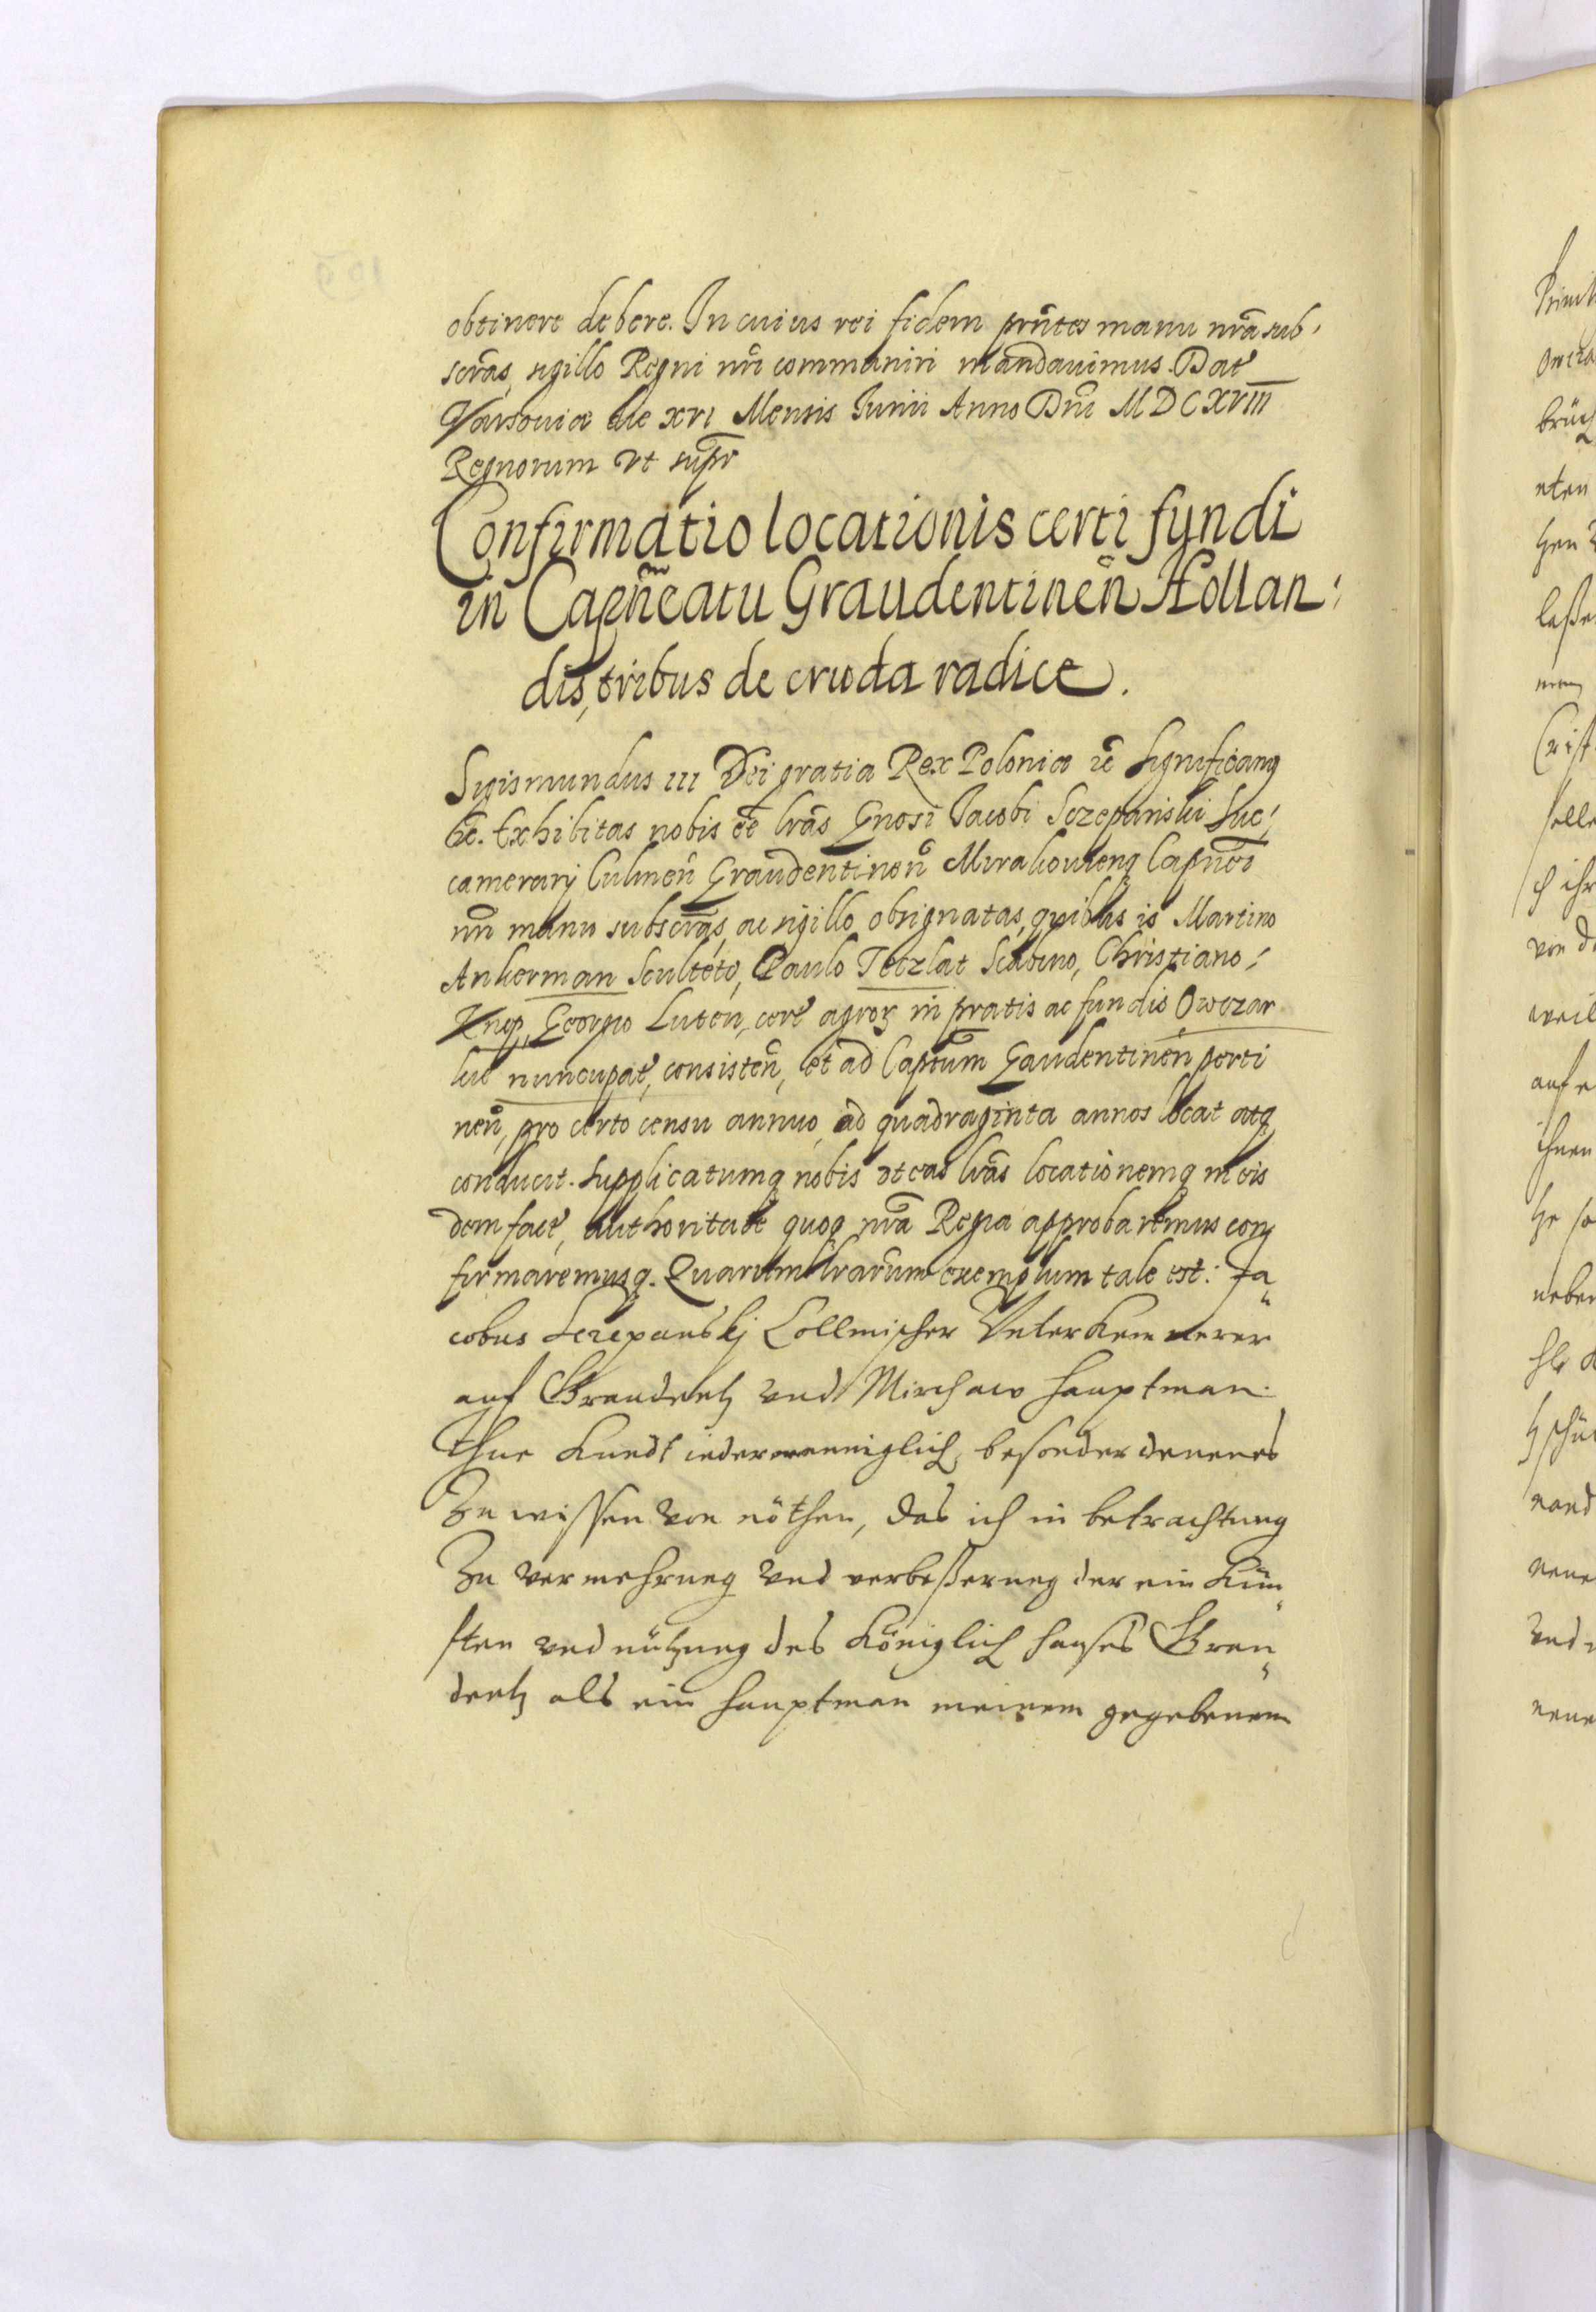 obtinere debere. In cuius rei fidem prñtes manu nrã sub,
scrãs, sigillo Regni nrĩ communiri mandauimus. Dat̃
Varsouiæ die XVI Mensis Iunii Anno Dnĩ MDCXVIII
Regnorum vt supr̃
Confirmatio locationis certi fundi
in Capñeatu Graudentineñ Hollan:
dis, tribus de cruda radice.
Sigismundus III Dei gratia Rex Poloniæ &c̃ Significamq
&c̃. Exhibitas nobis eẽ lrãs Gnosi Jacobi Sczepanski Suc,
camerarij Culmeñ Graudentineñ Mirahouienq Capnei
nrĩ manu subscrãs, ac sigillo obsignatas, quibus is Martino
Ankerman Sculteto, Paulo Tetzlat Scabino, Christiano,
Knep, Georgio Luteñ, cert̃ agroꝝ in pratis ac fundis Owczar
lue nuncupat̃, consisteñ, et ad Captũm Gaudentineñ perti
neñ, pro certo censu annuo, ad quadraginta annos locat atq
conducit. Supplicatumq nobis vt eas lrãs locationemq in eis
dem fact̃, authoritate quoq nrã Regia approbaremus con
firmaremusq. Quarum lrarũm exemplum tale est: Ja„
cobus Sczepanskj Collmischer Unterkemmerer
auf Graudentz vnd Mirchaw Hauptman.
Thue kundt iedermenniglich, besonder denen es
Zu wissen von nöthen, das ich in betrachtung
Zu vermehrung vnd verbeßerung der ein kün„
ften vnd nützung des Königlich Hauses Grau„
dentz als ein Hauptman meinem gegebenem